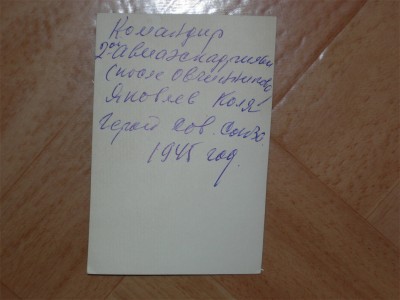 Командир
2ой Авиаэскадрильи
(после Овчинников
Яковлев Коля
Герой Сов. Союза
1945 год.